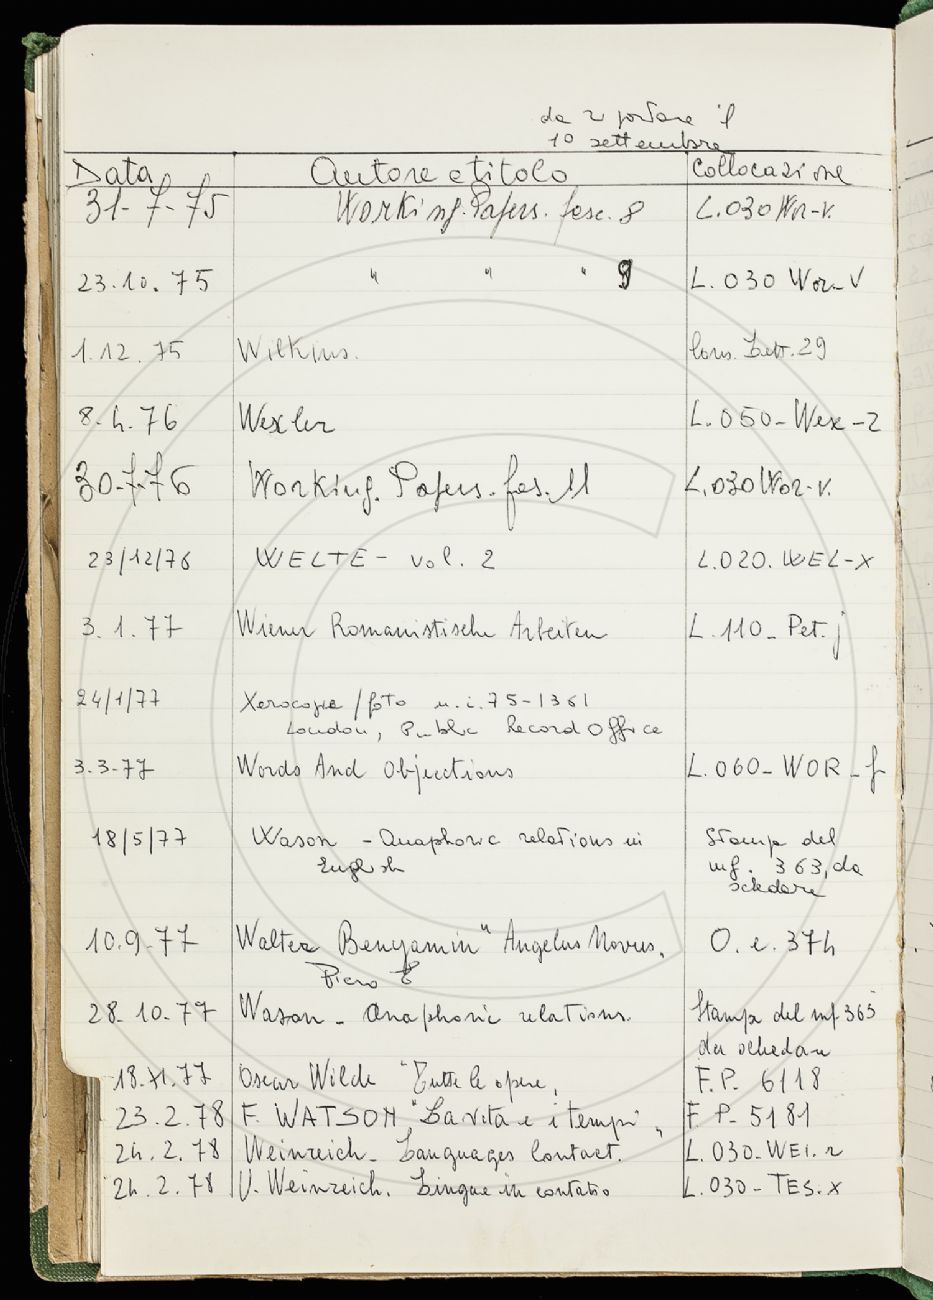 da riportare il
10 settembre
Data Autore e titolo Collocazione
31-7-75 Working. Papers. fasc. 8 L.030 Wor-V.
23.10.75 " " " 9 L.030 Wor-V
1.12.75 Wilkins. Cons. Lett. 29
8.4.76 Wexler L.050-Wex-2
30-7-76 Working. Papers. fas. 11 L.030 Wor-V.
23/12/76 WELTE - vol. 2 L.020. WEL-X
3.1.77 Wiener Romanistische Arbeiten L.110-Pet.j
24/1/77 Xerocopie/foto n.i. 75-1361
London, Public Record Office
3.3-77 Words And Objections L.060-WOR-f
18/5/77 Wason - Anaphoric relations in Stampa del
English mf. 363, da
schedare
10.9-77 Walter Benyamin "Angelus Novus, O.e. 374
Piero
28.10-77 Wason - Anaphoric relations. Stampa del mf 363
da schedare
18.11.77 Oscar Wilde "Tutte le opere, F.P. 6118
23.2.78 F. WATSON, "La vita e i tempi" F P- 5181
24.2.78 Weinreich - Languages Contact. L.030-WEI.r
24.2.78 U. Weinreich. Lingue in contatto L.030-TES.x